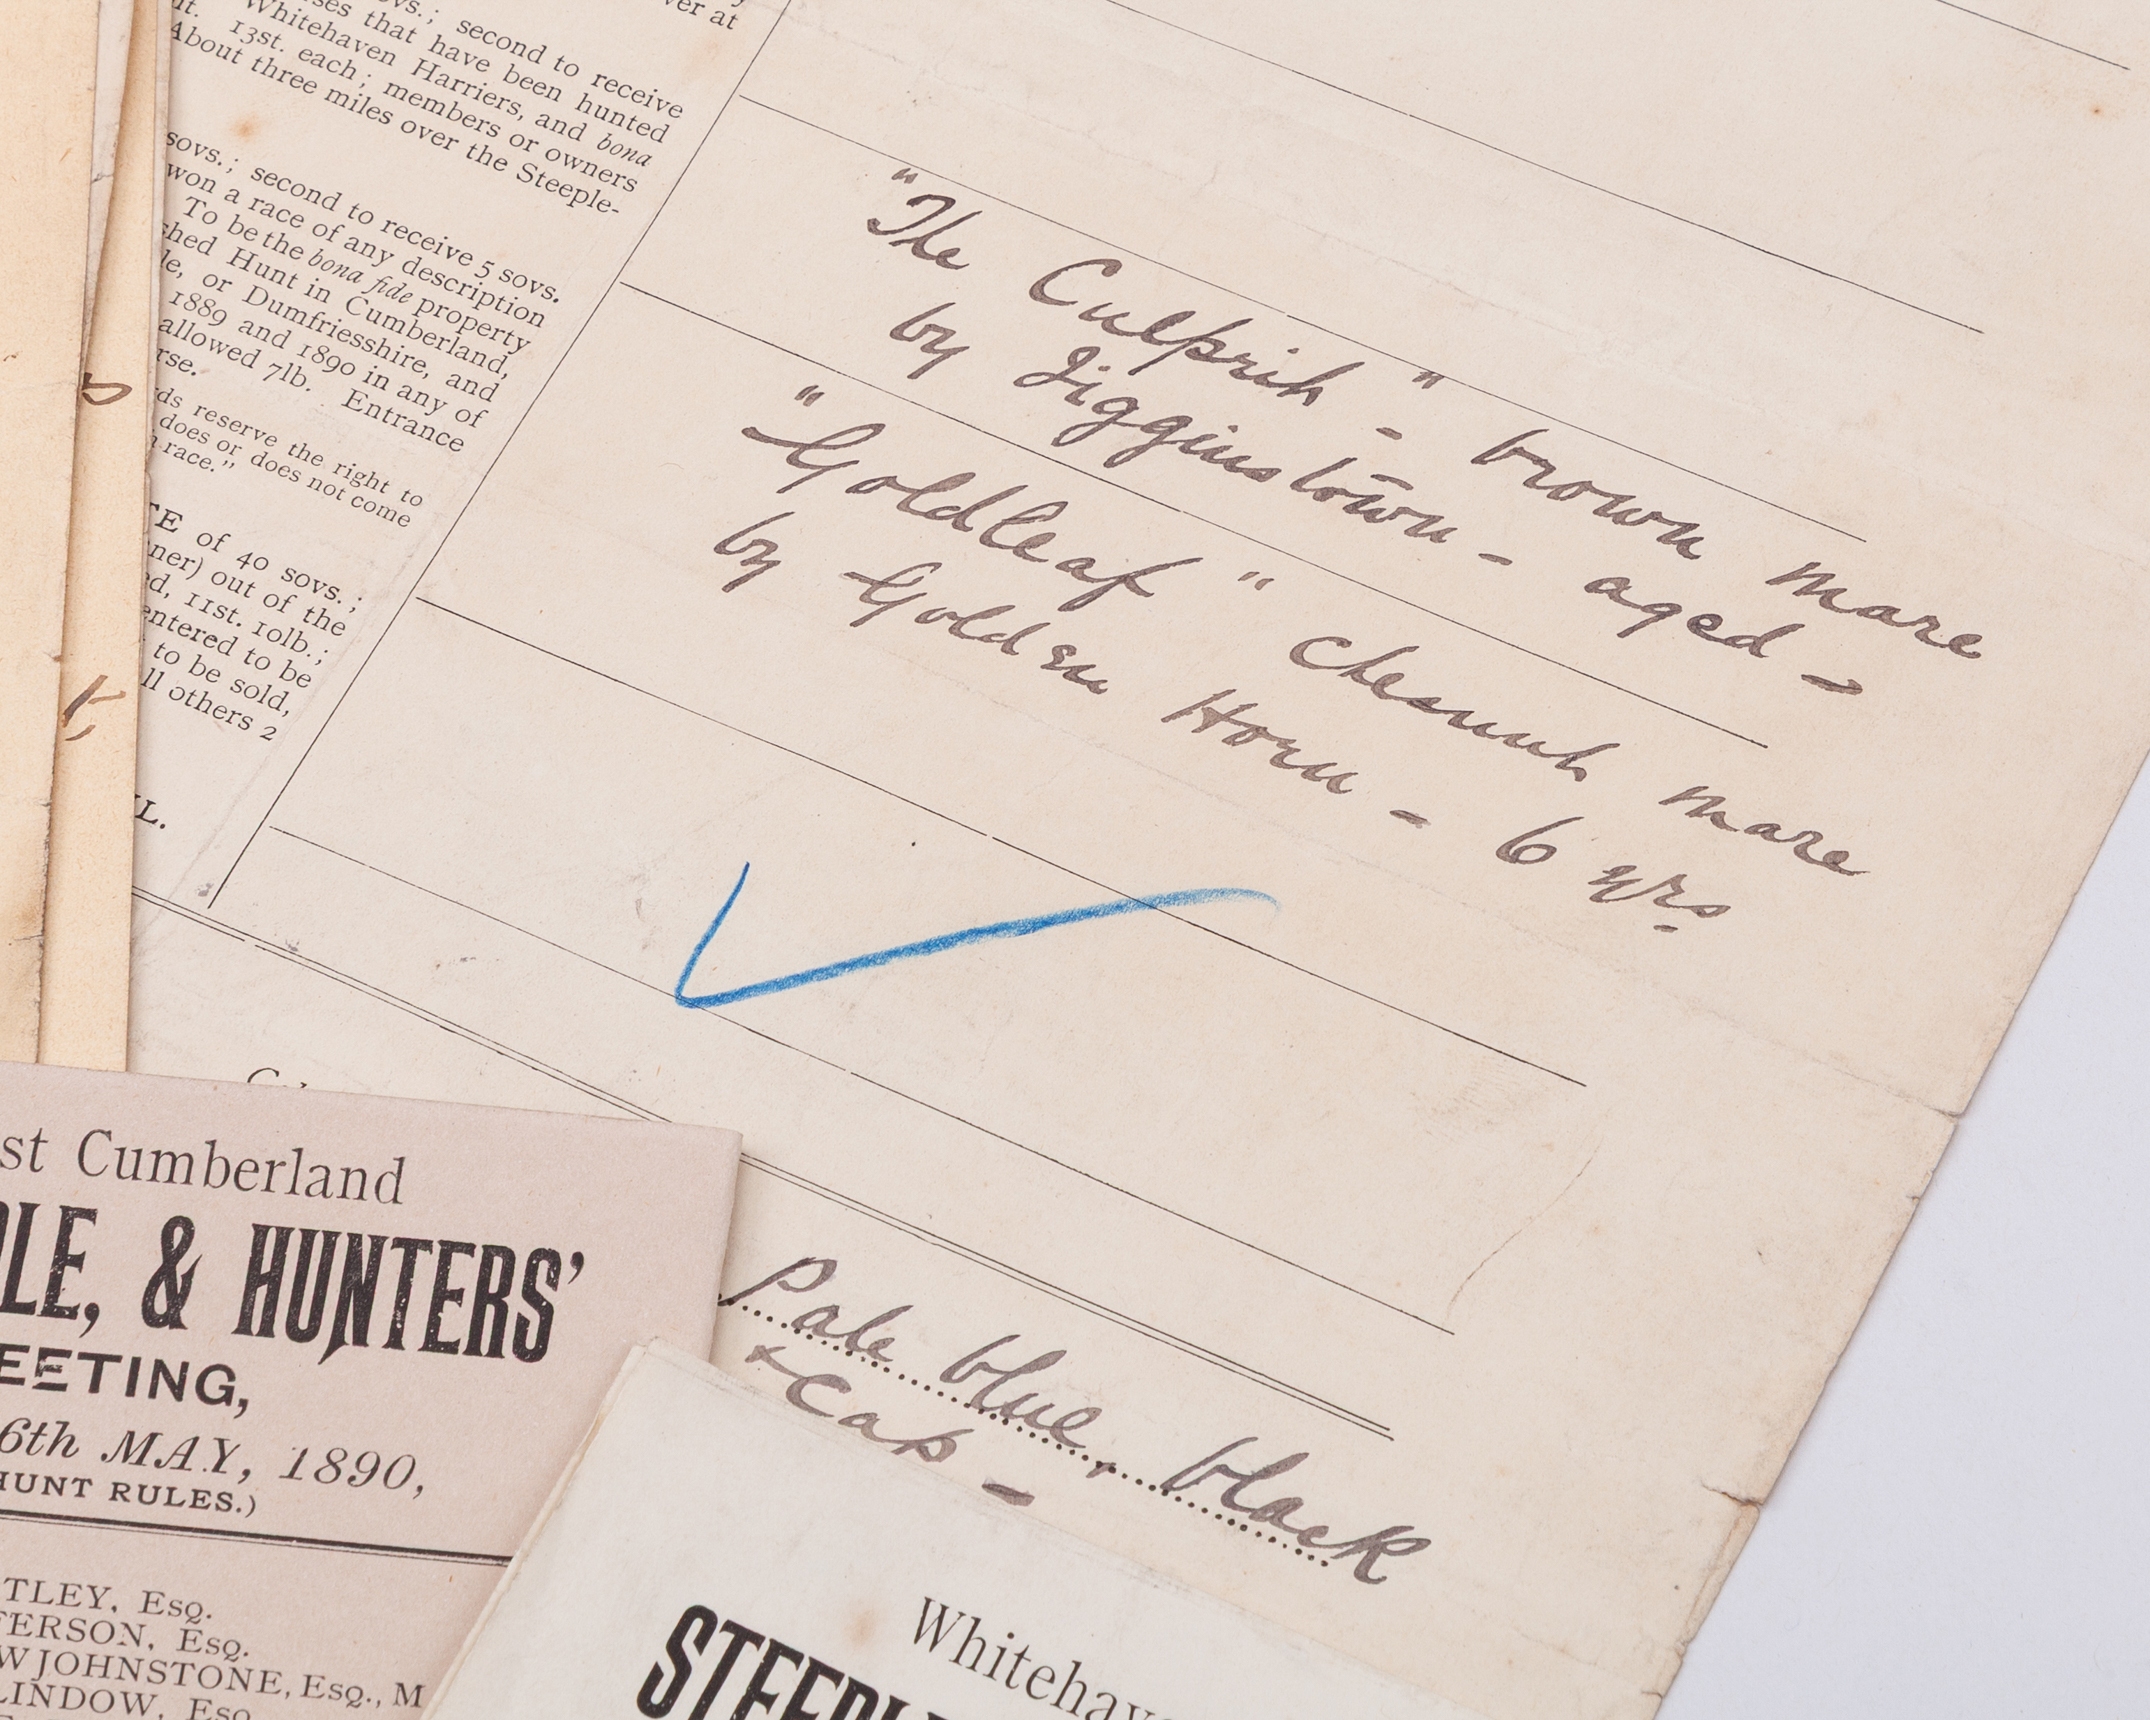 ver at
ovs.; second to receive
ses that have been hunted
Whitehaven Harriers, and bona
13st. each; members or owners
About three miles over the Steeple-
sovs.; second to receive 5 sovs.
won a race of any description
To be the bona fide property
shed Hunt in Cumberland,
le, or Dumfriesshire, and
1889 and 1890 in any of
allowed 7lb. Entrance
rse.
ds reserve the right to
does or does not come
race."
TE of 40 sovs.;
ner) out of the
ed, 11st. 10lb.;
entered to be
to be sold,
ll others 2
L.
"The Culprit" - brown mare
by Jigginstown - aged -
"Goldleaf" chesnut mare
by Golden Horn - 6 yrs
Pale blue, black
+ cap -
st Cumberland
DLE, & HUNTERS'
EETING,
6th MAY, 1890,
HUNT RULES.)
TLEY, Esq.
FERSON, Esq.
W JOHNSTONE, Esq., M
LINDOW, Esq
Whitehav
STEEPL